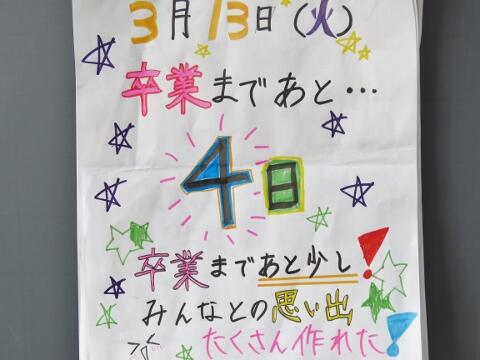 3月13日(火)
卒業まであと…
4日
卒業まであと少し!
みんなとの思い出
たくさん作れた!